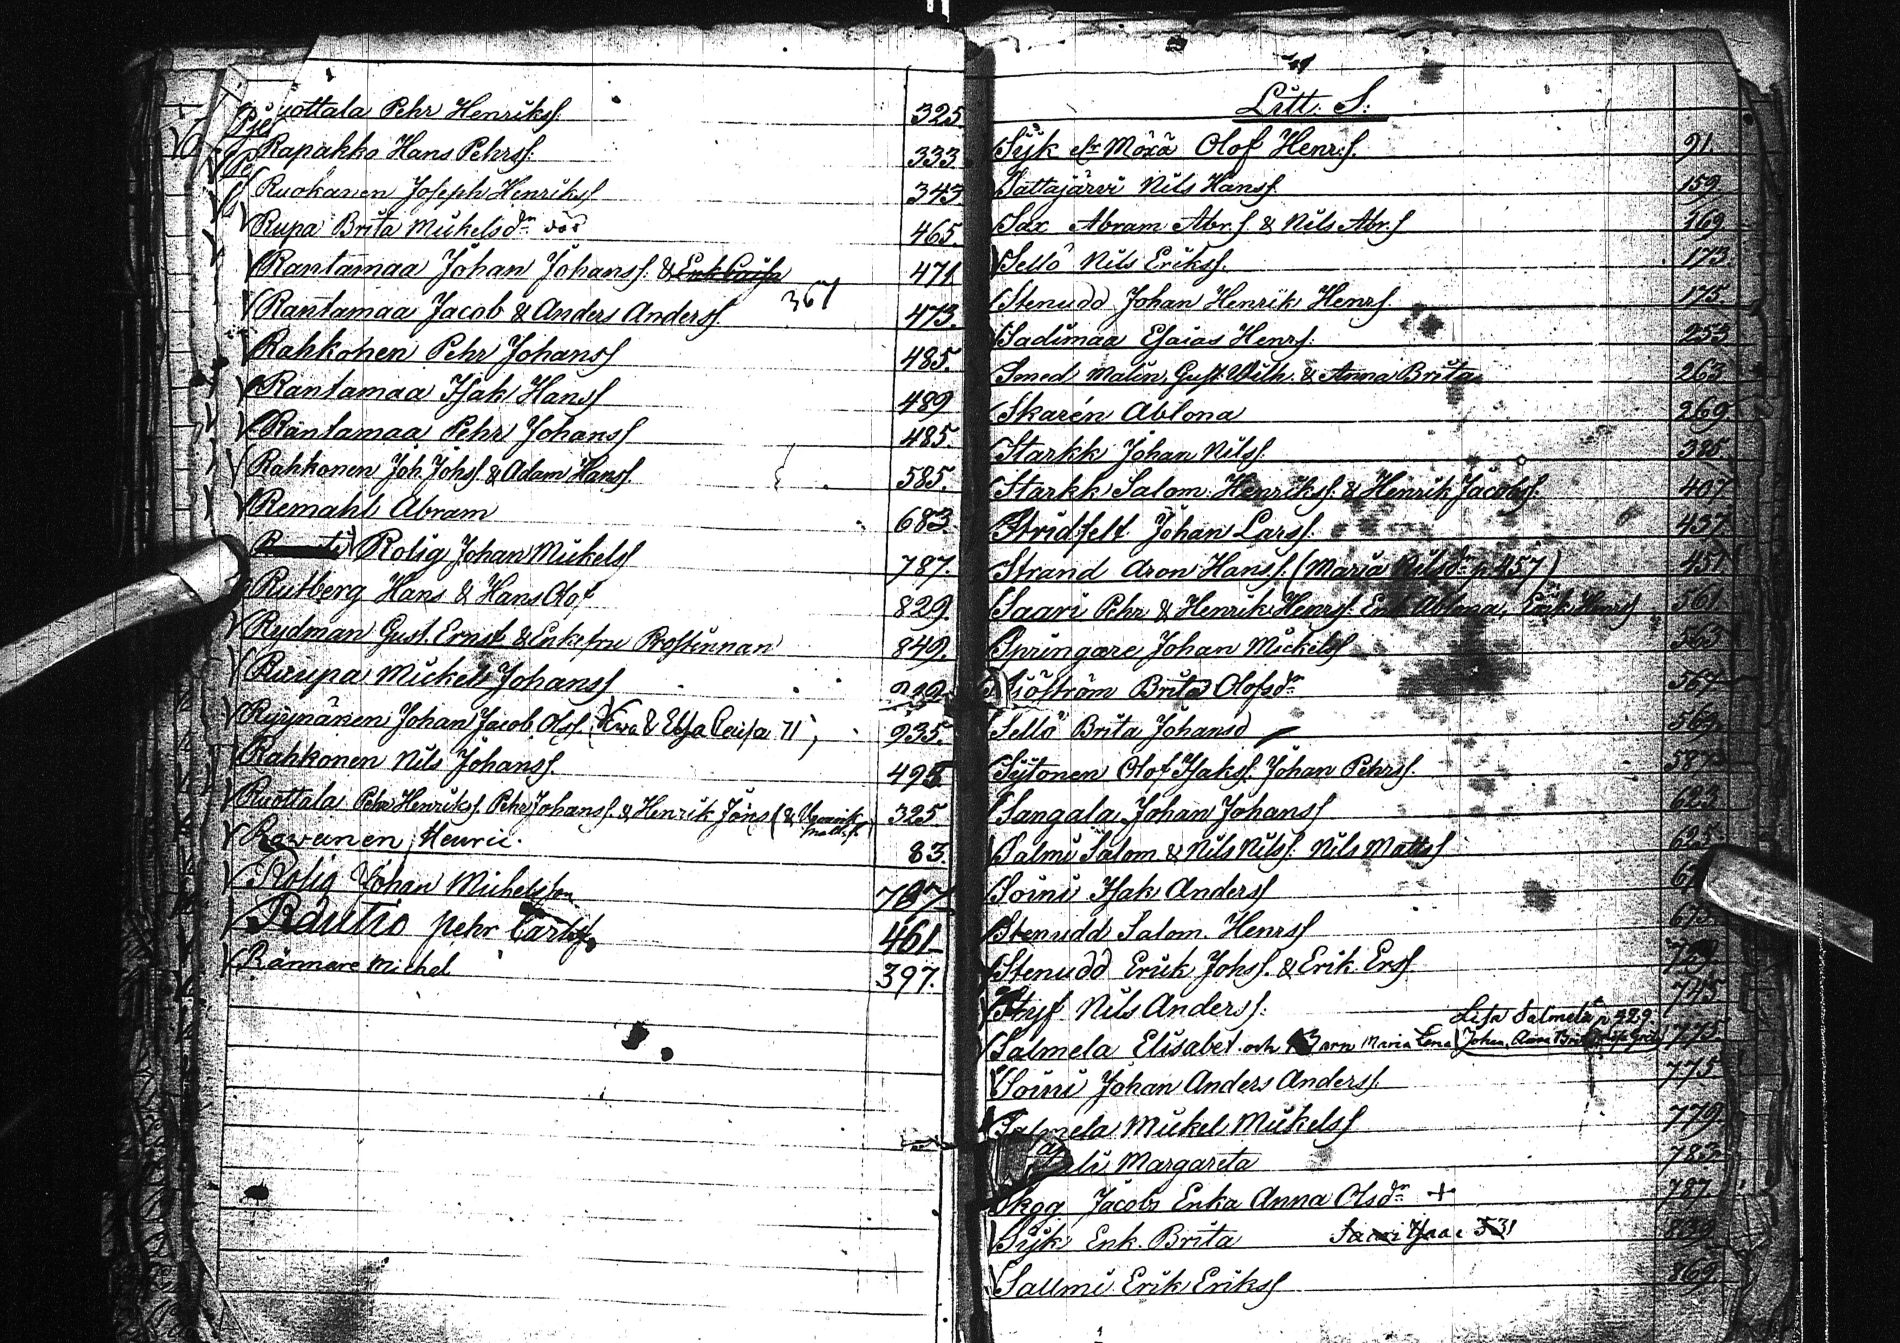 Ruottala Pehr Henriks. 325
Rapakko Hans Pehrss. 333
Ruokanen Joseph Henriks 343
Rupa Brita Mickelsdr 465.
Rantamaa Johan Johanss. & Enk Caisa 471
Rantamaa Jacob & Anders Anderss. 367 473.
Rahkonen Pehr Johanss 485.
Rantamaa Isak Hanss 489
Rantamaa Pehr Johanss 485.
Rahkonen Joh. Johss. & Adam Hanss. 585.
Remahl Abram 683.
Rolig Johan Mickelss 787.
Rutberg Hans & Hans Olof 829.
Rudman Gust. Ernst & Enkefru Prostinnan 849.
Ruupa Mickel Johanss
Ryynänen Johan Jacob Olss. 935.
Rahkonen Nils Johanss. 495
Ruottala Pehr Henrikss. Pehr Johanss. & Henrik Jöns 325.
Rawunen Henric. 83.
Rolig Johan Michelsson 787
Rautio Pehr Carlss. 461
Rännare Michel 397.
Litt. S:
Syk Olof Henr.s. 91.
Sattajärvi Nils Hanss. 159.
Sax Abram Abr.s. & Nils Abr.s 169.
Sellö Nils Erikss. 173.
Stenudd Johan Henrik Henrs. 175.
Sadimaa Esaias Henrs. 253
Smed Malin, Gust. Wilh. & Anna Brita 263.
Skarén Ablona 269
Starkk Johan Nilss. 385.
Starkk Salom. Henrikss. & Henrik Jacobss. 407
Stridfelt Johan Larss. 437.
Strand Aron Hans.s. (Maria Nilsdr p. 457) 451.
Saari Pehr & Henrik Henrs. Enk. Ablona, Erik Henrs 561.
Springare Johan Mickelss 563
Sjöström Brita Olofsdr 567
Sellö Brita Johansd 569.
Sytonen Olof Isakss. Johan Pehrss. 587
Sangala Johan Johanss 623
Salmi Salom & Nils Nilss. Nils Matts 625.
Soini Isak Anderss
Stenudd Salom. Henrs
Stenudd Erik Johs. & Erik Erss
Styf Nils Anderss. 745
Lisa Salmela p 429
Salmela Elisabet och Barn Maria Lena 775.
Soini Johan Anders Anderss. 775
Salmela Mickel Mickelss 779.
Margareta 783.
Skog Jacobs Enka Anna Olsdr + 787
Syk Enk. Brita Saari Isaac 531 839
Sallmi Erik Erikss 869.